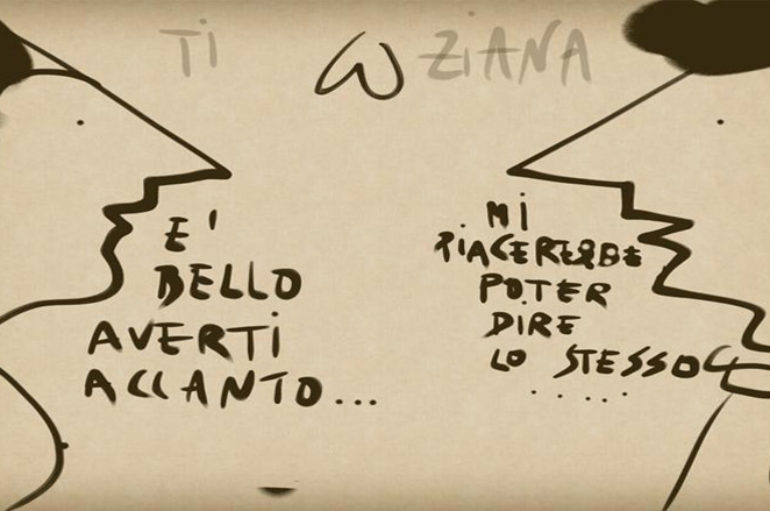 TI ZIANA
E'
BELLO
AVERTI
ACCANTO...
MI
PIACEREBBE
POTER
DIRE
LO STESSO
......